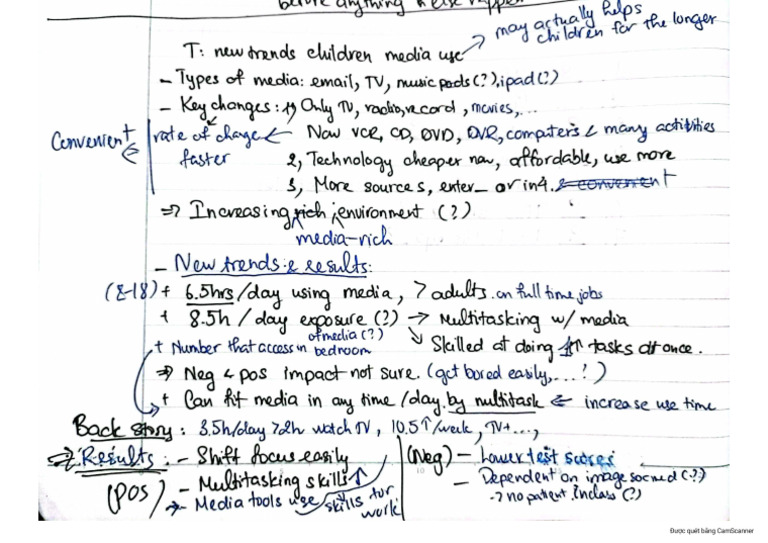 before anything else happen
may actually helps
children for the longer
T: new trends children media use
- Types of media: email, TV, music pods(?), ipad(?)
- Key changes: 1, Only TV, radio, record, movies,...
Convenient ← rate of change ← Now VCR, CD, DVD, DVR, computers & many activities
faster 2, Technology cheaper now, affordable, use more
3, More sources, enter_ or in4.
⇒ Increasing rich environment (?)
media-rich
- New trends & results:
(8-18) + 6.5hrs/day using media, > adults. on full time jobs
+ 8.5h / day exposure (?) → Multitasking w/ media
of media (?)
+ Number that access in bedroom ↘ Skilled at doing ↑↑ tasks at once.
⇒ Neg & pos impact not sure. (get bored easily,...!)
+ Can fit media in any time/day by multitask ⇐ increase use time
Back story: 3.5h/day >2h watch TV, 10.5↑/week, TV+...,
⇒ Results: - Shift focus easily (Neg) - Lower test scores
(Pos) - Multitasking skills ↑ - Dependent on image (??)
→ Media tools use skills for work → no patient inclass (?)
Được quét bằng CamScanner